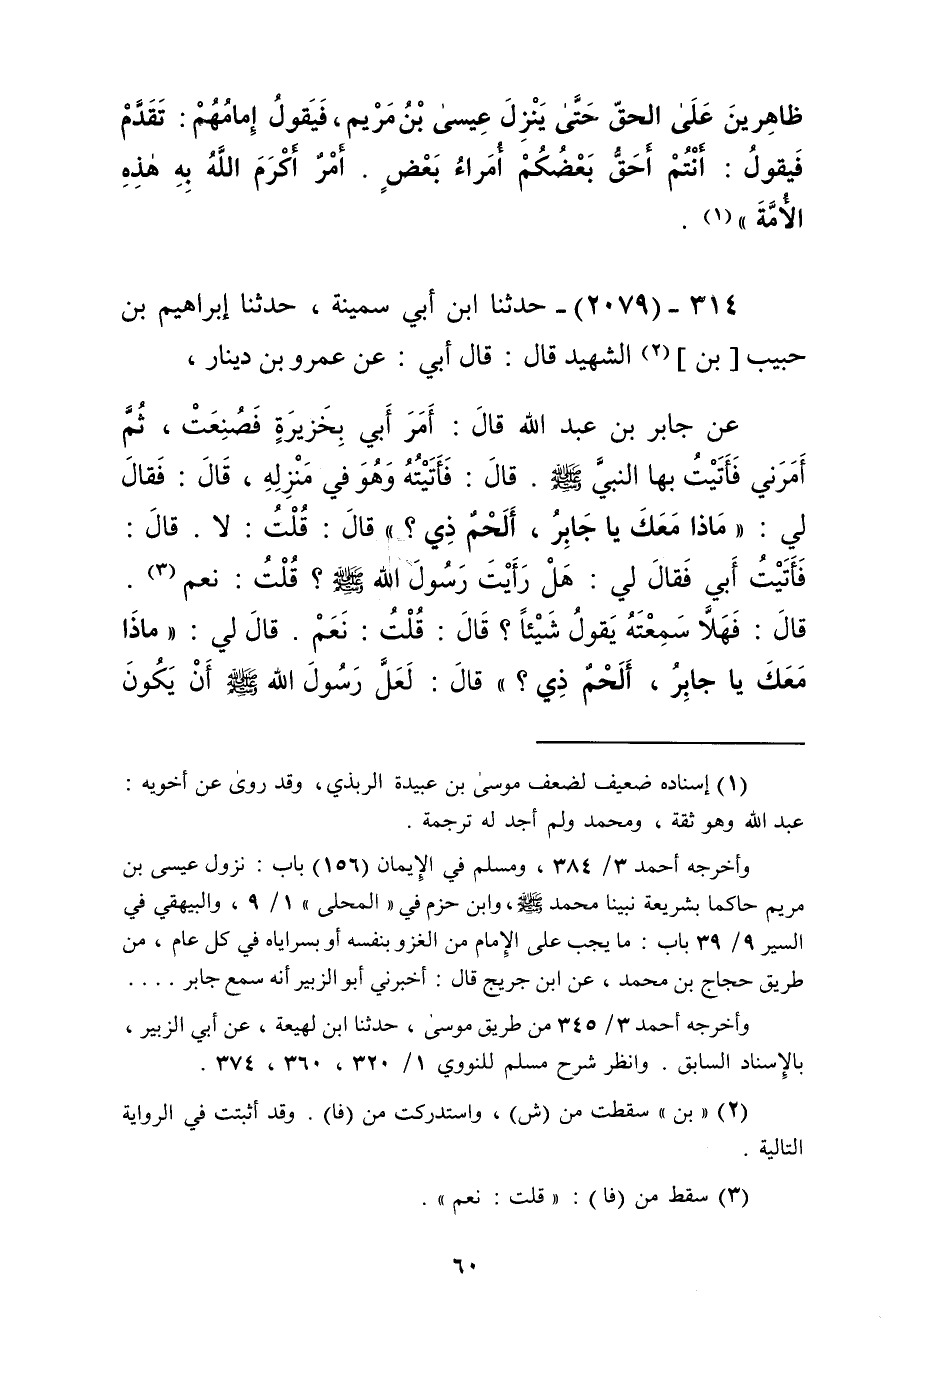 ظاهِرينَ عَلَىٰ الحقّ حَتَّىٰ يَنْزِلَ عِيسىٰ بْنُ مَرْيم، فَيَقولُ إِمامُهُمْ : تَقَدَّمْ
فَيقولُ : أَنْتُمْ أَحَقُّ بَعْضُكُمْ أُمَراءُ بَعْضٍ . أَمْرٌ أَكْرَمَ اللَّهُ بِهِ هٰذِهِ
الأُمَّةَ » (١) .
٣١٤ - (٢٠٧٩) - حدثنا ابن أبي سمينة ، حدثنا إبراهيم بن
حبيب [ بن ] (٢) الشهيد قال : قال أبي : عن عمرو بن دينار ،
عن جابر بن عبد الله قالَ : أَمَرَ أَبي بِخَزيرَةٍ فَصُنِعَتْ ، ثُمَّ
أَمَرَني فَأَتَيْتُ بها النبيَّ ﷺ . قالَ : فَأَتَيْتُهُ وَهُوَ في مَنْزِلِهِ ، قَالَ : فَقالَ
لي : « مَاذا مَعَكَ يا جَابِرُ ، أَلَحْمٌ ذِي ؟ » قالَ : قُلْتُ : لا . قالَ :
فَأَتَيْتُ أَبي فَقالَ لي : هَلْ رَأَيْتَ رَسُولَ الله ﷺ ؟ قُلْتُ : نعم (٣) .
قالَ : فَهَلاَّ سَمِعْتَهُ يَقولُ شَيْئاً ؟ قَالَ : قُلْتُ : نَعَمْ . قالَ لي : « ماذَا
مَعَكَ يا جابِرُ ، أَلَحْمٌ ذِي ؟ » قالَ : لَعَلَّ رَسُولَ الله ﷺ أَنْ يَكُونَ
(١) إسناده ضعيف لضعف موسىٰ بن عبيدة الربذي، وقد روىٰ عن أخويه :
عبد الله وهو ثقة ، ومحمد ولم أجد له ترجمة .
وأخرجه أحمد ٣/ ٣٨٤ ، ومسلم في الإيمان (١٥٦) باب : نزول عيسى بن
مريم حاكما بشريعة نبينا محمد ﷺ، وابن حزم في « المحلى » ١/ ٩ ، والبيهقي في
السير ٩/ ٣٩ باب : ما يجب على الإمام من الغزو بنفسه أو بسراياه في كل عام ، من
طريق حجاج بن محمد ، عن ابن جريج قال : أخبرني أبو الزبير أنه سمع جابر . . . .
وأخرجه أحمد ٣/ ٣٤٥ من طريق موسىٰ ، حدثنا ابن لهيعة ، عن أبي الزبير ،
بالإسناد السابق . وانظر شرح مسلم للنووي ١/ ٣٢٠ ، ٣٦٠ ، ٣٧٤ .
(٢) « بن » سقطت من (ش) ، واستدركت من (فا) . وقد أثبتت في الرواية
التالية .
(٣) سقط من (فا ) : « قلت : نعم » .
٦٠